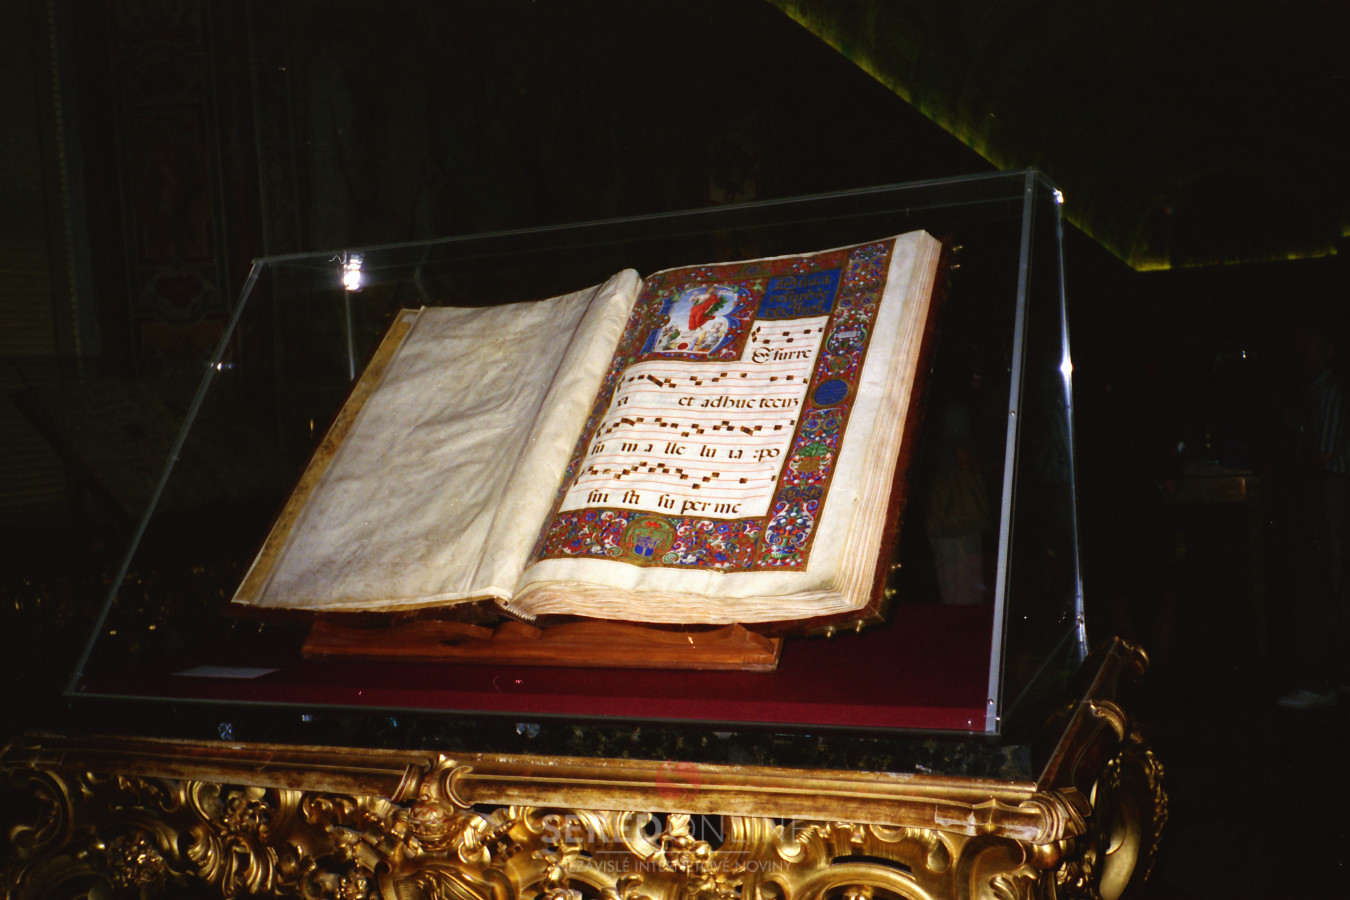 Esurre
xi et adhuc tecuz
su m alle lu ia :po
sui sti su per me
SEREĎONLINE
NEZÁVISLÉ INTERNETOVÉ NOVINY